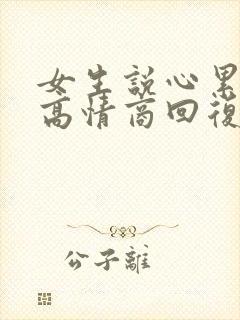 女生説心累
高情商回復
公子離